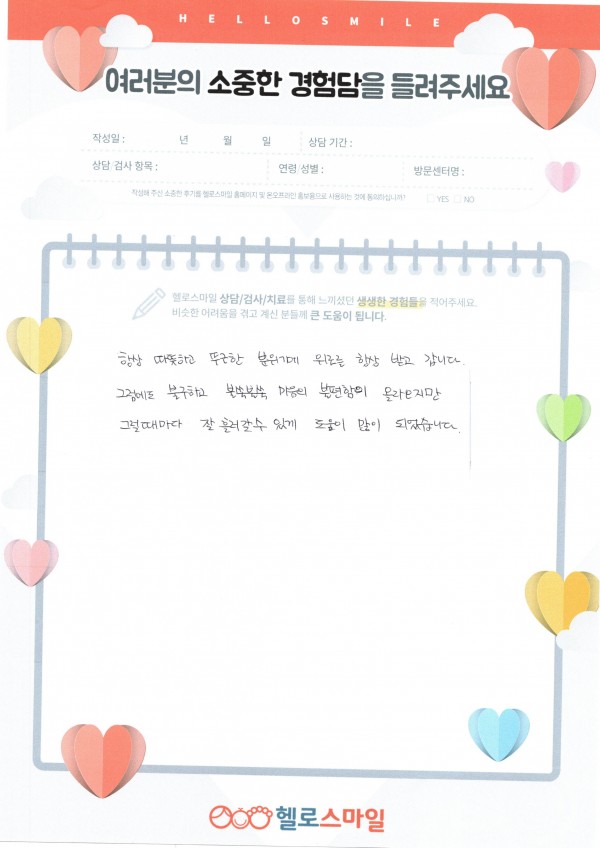 HELLOSMILE
여러분의 소중한 경험담을 들려주세요
작성일 : 년 월 일 상담 기간 :
상담·검사 항목 : 연령/성별 : 방문센터명 :
작성해 주신 소중한 후기를 헬로스마일 홈페이지 및 온오프라인 홍보용으로 사용하는 것에 동의하십니까? YES NO
헬로스마일 상담/검사/치료를 통해 느끼셨던 생생한 경험들을 적어주세요.
비슷한 어려움을 겪고 계신 분들께 큰 도움이 됩니다.
항상 따뜻하고 뚜근한 분위기에 위로를 항상 받고 갑니다.
그럼에도 불구하고 불쑥불쑥 마음의 불편함이 올라오지만
그럴때마다 잘 흘러갈수 있게 도움이 많이 되었습니다.
헬로스마일